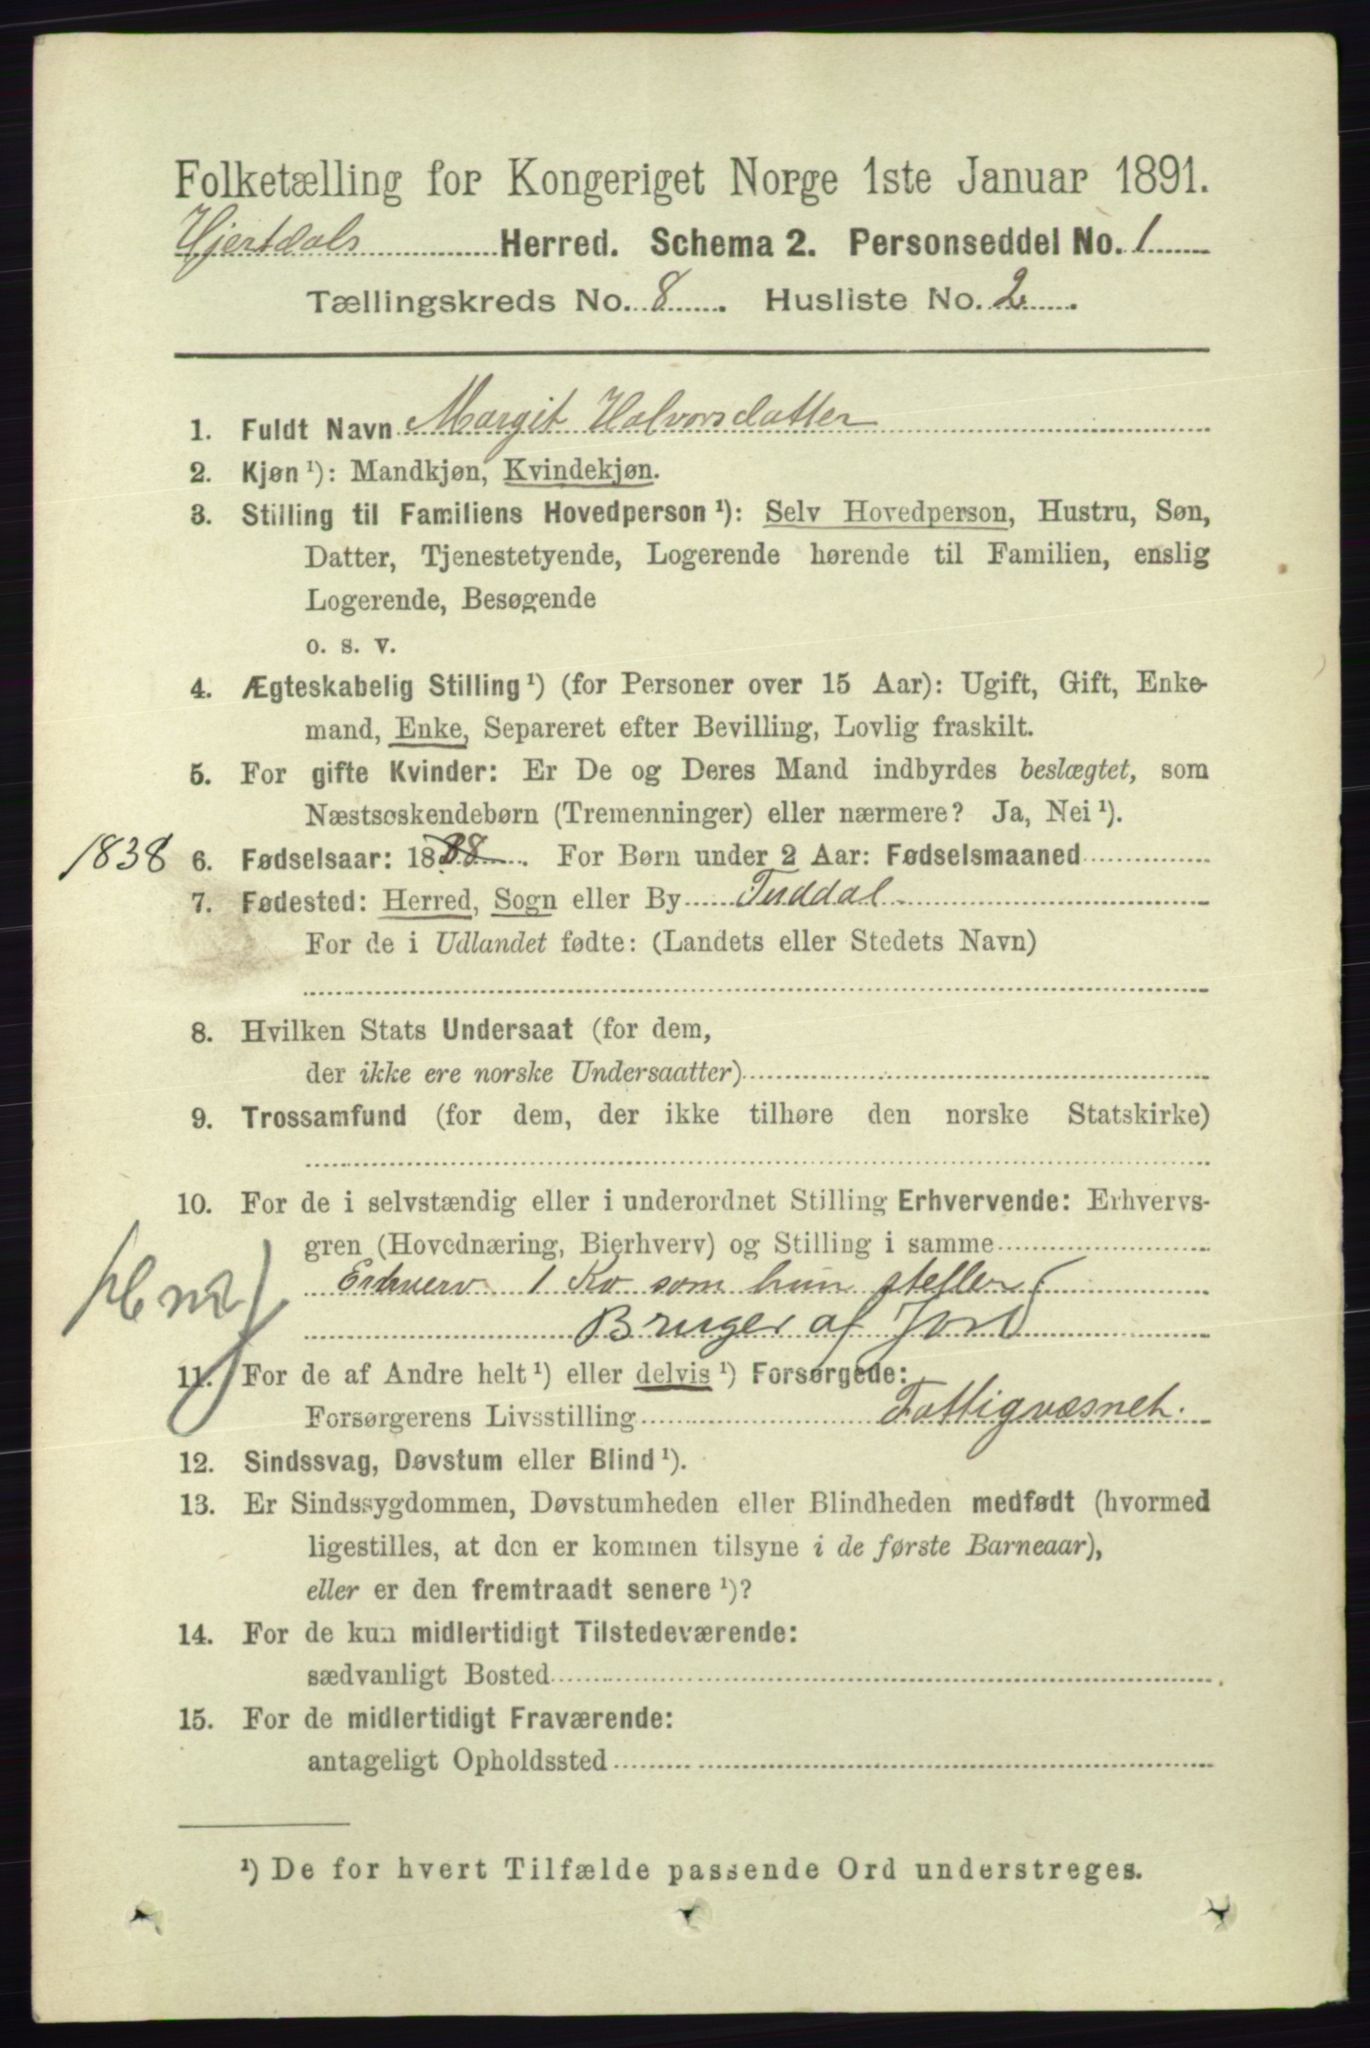 Folketælling for Kongeriget Norge 1ste Januar 1891.
Hjertdals Herred. Schema 2. Personseddel No. 1
Tællingskreds No. 8. Husliste No. 2.
1. Fuldt Navn Margit Halvorsdatter
2. Kjøn ¹): Mandkjøn, Kvindekjøn.
3. Stilling til Familiens Hovedperson ¹): Selv Hovedperson, Hustru, Søn,
Datter, Tjenestetyende, Logerende hørende til Familien, enslig
Logerende, Besøgende
o. s. v.
4. Ægteskabelig Stilling ¹) (for Personer over 15 Aar): Ugift, Gift, Enke-
mand, Enke, Separeret efter Bevilling, Lovlig fraskilt.
5. For gifte Kvinder: Er De og Deres Mand indbyrdes beslægtet, som
Næstsøskendebørn (Tremenninger) eller nærmere? Ja, Nei ¹).
1838 6. Fødselsaar: 1888. For Børn under 2 Aar: Fødselsmaaned
7. Fødested: Herred, Sogn eller By Tuddal
For de i Udlandet fødte: (Landets eller Stedets Navn)
8. Hvilken Stats Undersaat (for dem,
der ikke ere norske Undersaatter)
9. Trossamfund (for dem, der ikke tilhøre den norske Statskirke)
10. For de i selvstændig eller i underordnet Stilling Erhvervende: Erhvervs-
gren (Hovednæring, Bierhverv) og Stilling i samme
Erhverv 1 Ko som hun steller (
Bruger af Jord
11. For de af Andre helt ¹) eller delvis ¹) Forsørgede:
Forsørgerens Livsstilling Fattigvæsnet.
12. Sindssvag, Døvstum eller Blind ¹).
13. Er Sindssygdommen, Døvstumheden eller Blindheden medfødt (hvormed
ligestilles, at den er kommen tilsyne i de første Barneaar),
eller er den fremtraadt senere ¹)?
14. For de kun midlertidigt Tilstedeværende:
sædvanligt Bosted
15. For de midlertidigt Fraværende:
antageligt Opholdssted
¹) De for hvert Tilfælde passende Ord understreges.